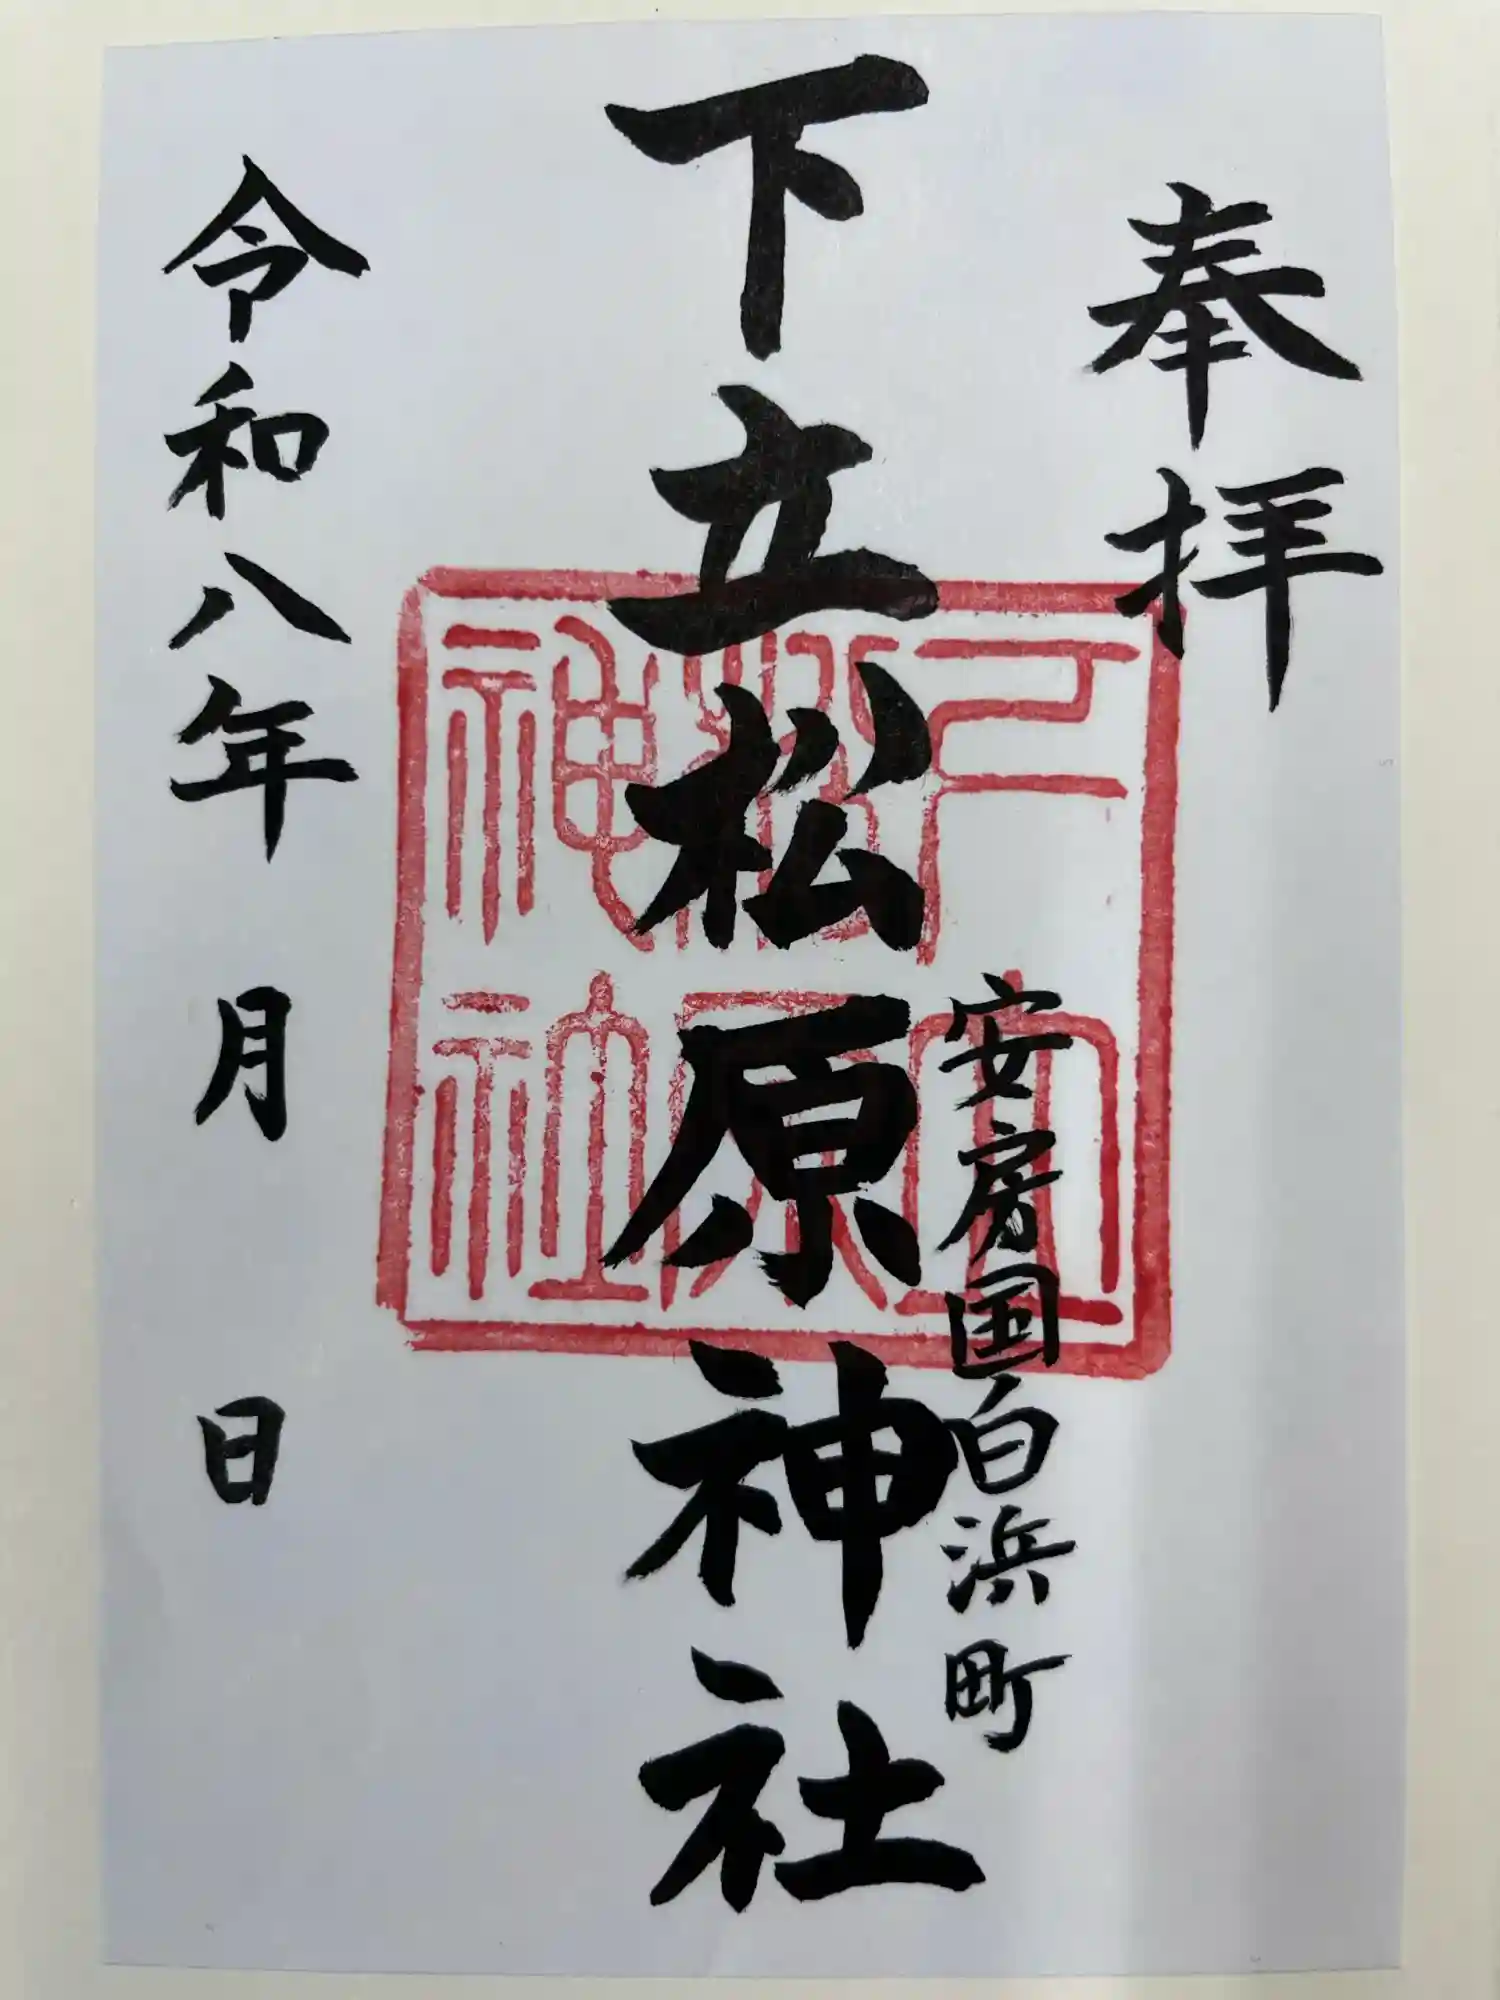 奉拝
安房国白浜町
下立松原神社
下立
松原
神社
令和八年　月　日